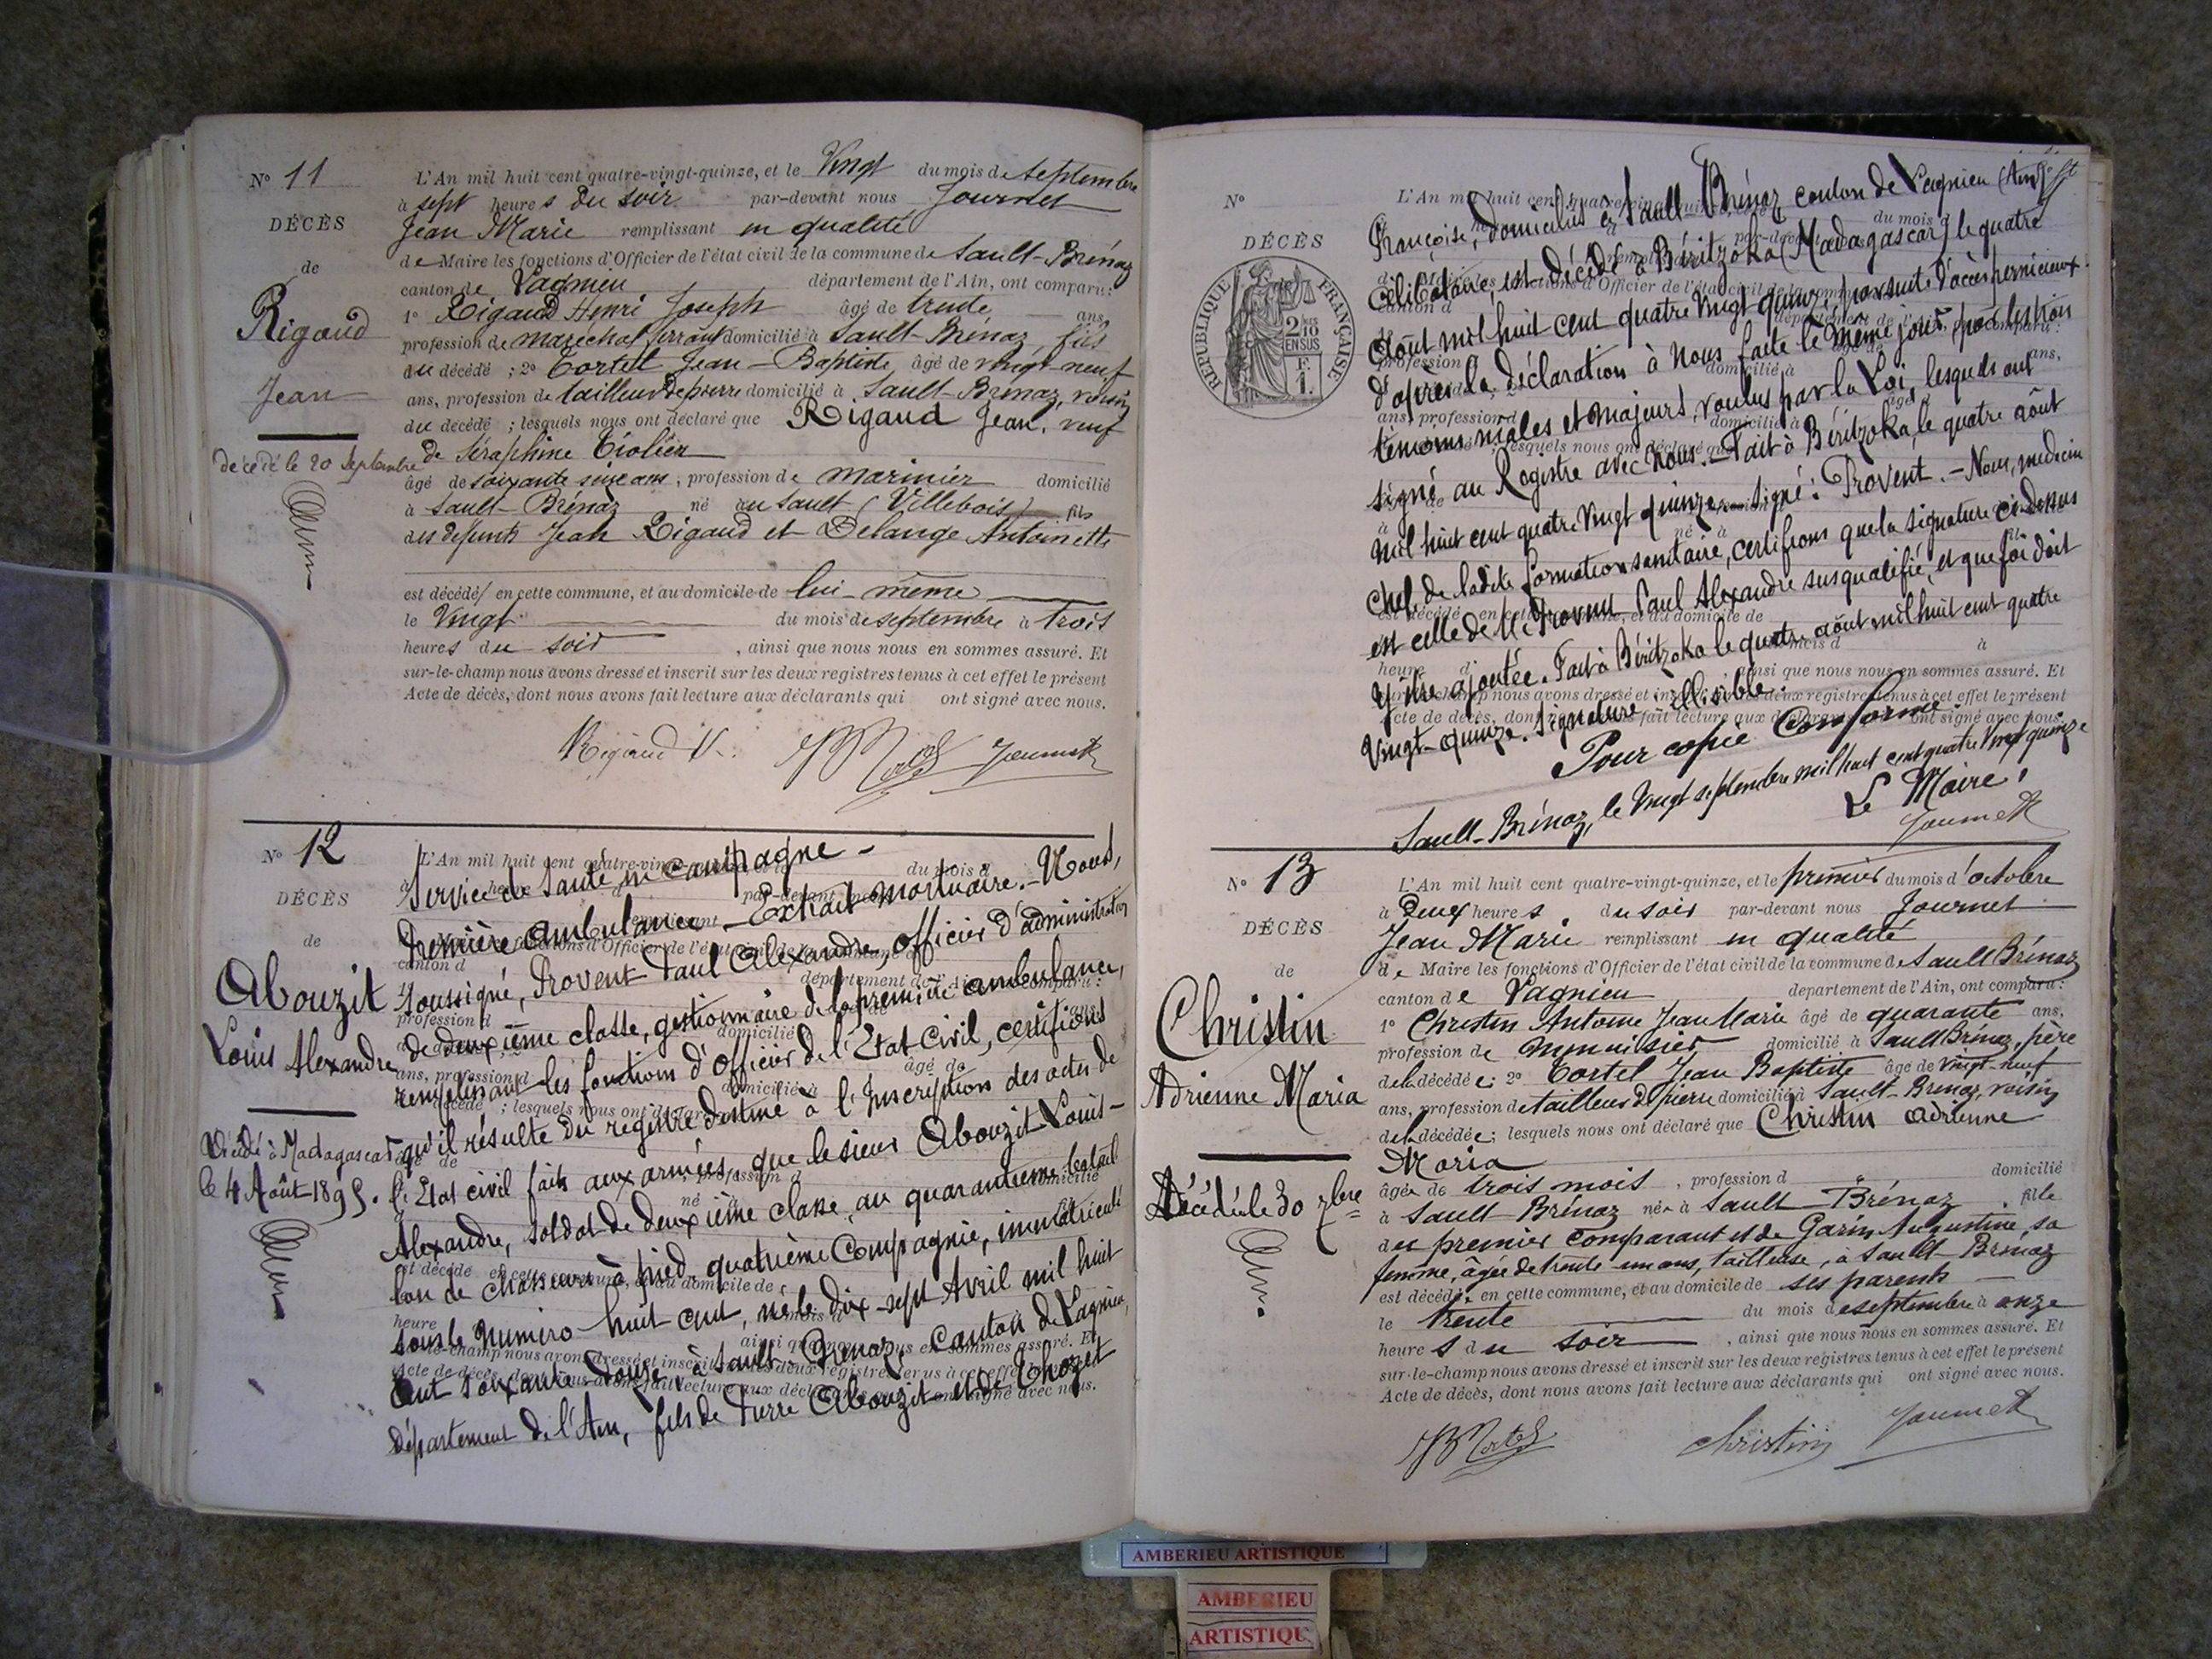 N° 11
DÉCÈS
de
Rigaud
Jean
décédé le 20 Septembre
L'An mil huit cent quatre-vingt-quinze, et le Vingt du mois de septembre
à sept heures du soir par-devant nous Journet
Jean Marie remplissant en qualité
de Maire les fonctions d'Officier de l'état civil de la commune de Sault-Brénaz
canton de Lagnieu département de l'Ain, ont comparu:
1° Rigaud Henri Joseph âgé de trente, ans,
profession de maréchal ferrant domicilié à Sault-Brénaz, fils
du décédé ; 2° Tortel Jean-Baptiste, âgé de vingt-neuf
ans, profession de tailleur de pierre domicilié à Sault-Brénaz, voisin
du décédé ; lesquels nous ont déclaré que Rigaud Jean, veuf
de Séraphine
âgé de soixante seize ans, profession de marinier domicilié
à Sault-Brénaz né au Sault (Villebois) fils
des défunts Jean Rigaud et Delange Antoinette
est décédé en cette commune, et au domicile de lui-même
le Vingt du mois de septembre à trois
heures du soir, ainsi que nous nous en sommes assuré. Et
sur-le-champ nous avons dressé et inscrit sur les deux registres tenus à cet effet le présent
Acte de décès, dont nous avons fait lecture aux déclarants qui ont signé avec nous.
Rigaud Journet
N° 12
DÉCÈS
de
Abouzit
Louis Alexandre
Décédé à Madagascar
le 4 Août 1895.
Service de Santé en campagne -
Première ambulance - Extrait mortuaire. - Nous,
Soussigné, Provent Paul Alexandre, officier d'administration
de deuxième classe, gestionnaire de la première ambulance,
remplissant les fonctions d'officier de l'Etat Civil, certifions
qu'il résulte du registre destiné à l'Inscription des actes de
l'Etat civil faits aux armées, que le sieur Abouzit Louis-
Alexandre, soldat de deuxième classe, au quarantième batail
lon de chasseurs à pied, quatrième Compagnie, immatriculé
sous le numéro huit cent, né le dix-sept Avril mil huit
cent soixante douze, à Sault-Brénaz, Canton de Lagnieu,
département de l'Ain, fils de Pierre Abouzit et de Chozet
N°
DÉCÈS
RÉPUBLIQUE FRANÇAISE
2/10 EN SUS
1 F.
Françoise, domiciliés à Sault Brénaz canton de Lagnieu (Ain)
célibataire, est décédé à Béritzoka (Madagascar) le quatre
août mil huit cent quatre vingt quinze, par suite d'accès pernicieux.
d'après la déclaration à Nous faite le même jour, par les trois
témoins mâles et majeurs, voulus par la Loi, lesquels ont
signé au Registre avec nous. - Fait à Béritzoka, le quatre août
mil huit cent quatre vingt quinze. - Signé: Provent. - Nous, médecin
chef de ladite formation sanitaire, certifions que la signature ci-dessus
est celle de M. Provent Paul Alexandre susqualifié, et que foi doit
y être ajoutée. Fait à Béritzoka le quatre août mil huit cent quatre
Vingt-quinze. Signature illisible.
Pour copie Conforme
Sault-Brénaz, le Vingt septembre mil huit cent quatre Vingt quinze
Le Maire,
Journet
N° 13
DÉCÈS
de
Christin
Adrienne Maria
Décédé le 30 7bre
L'An mil huit cent quatre-vingt-quinze, et le premier du mois d'octobre
à Deux heures du soir par-devant nous Journet
Jean Marie remplissant en qualité
de Maire les fonctions d'Officier de l'état civil de la commune de Sault Brénaz
canton de Lagnieu département de l'Ain, ont comparu:
1° Christin Antoine Jean Marie âgé de quarante ans,
profession de menuisier domicilié à Sault Brénaz, père
de la décédée; 2° Tortel Jean Baptiste âgé de vingt-neuf
ans, profession de tailleur de pierre domicilié à Sault-Brénaz, voisin
de la décédée; lesquels nous ont déclaré que Christin Adrienne
Maria
âgée de trois mois, profession d domicilié
à Sault Brénaz née à Sault-Brénaz, fille
du premier comparant et de Garin Augustine, sa
femme, âgée de trente-un ans, tailleuse, à Sault-Brénaz
est décédée en cette commune, et au domicile de ses parents
le trente du mois de septembre à onze
heures du soir, ainsi que nous nous en sommes assuré. Et
sur-le-champ nous avons dressé et inscrit sur les deux registres tenus à cet effet le présent
Acte de décès, dont nous avons fait lecture aux déclarants qui ont signé avec nous.
Christin Journet
AMBERIEU ARTISTIQUE
AMBERIEU
ARTISTIQU